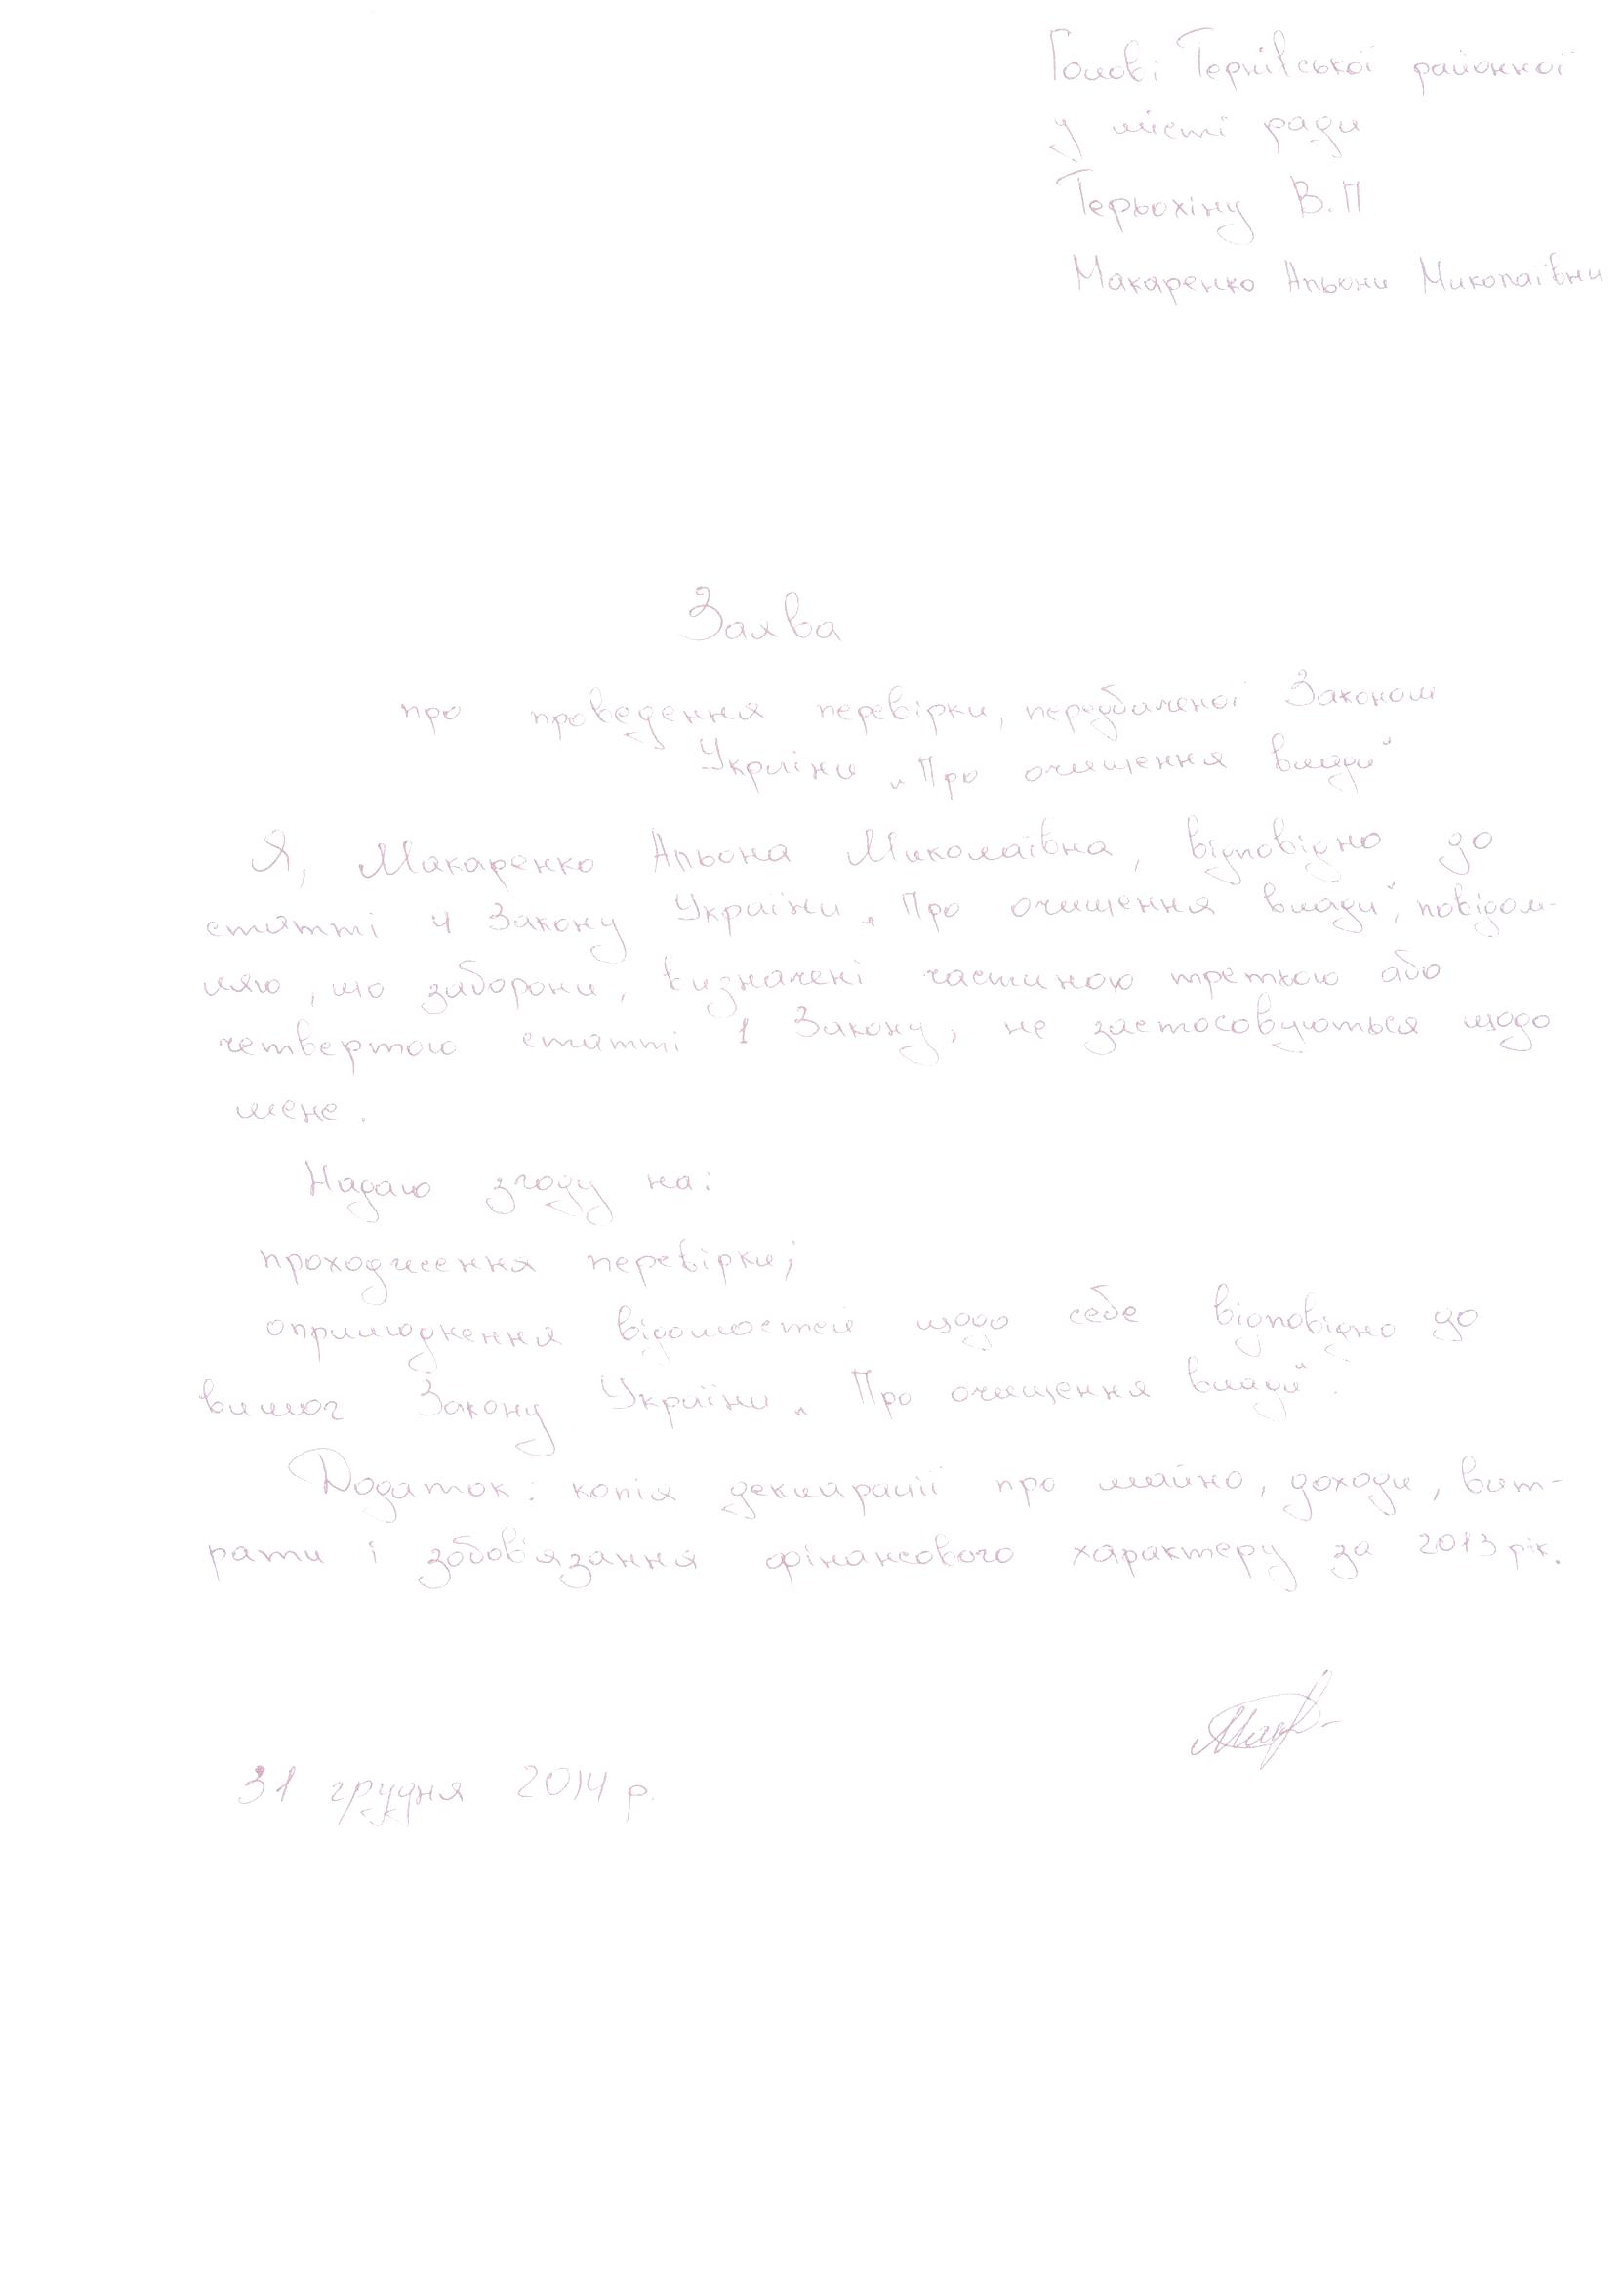 Голові Тернівської районної
у місті ради
Терьохіну В.П
Макаренко Альони Миколаївни
Заява
про проведення перевірки, передбаченої Законом
України „Про очищення влади"
Я, Макаренко Альона Миколаївна, відповідно до
статті 4 Закону України „Про очищення влади", повідом-
ляю, що заборони, визначені частиною третьою або
четвертою статті 1 Закону, не застосовуються щодо
мене.
Надаю згоду на:
проходження перевірки;
оприлюднення відомостей щодо себе відповідно до
вимог Закону України „Про очищення влади".
Додаток: копія декларації про майно, доходи, вит-
рати і зобов'язання фінансового характеру за 2013 рік.
31 грудня 2014 р.